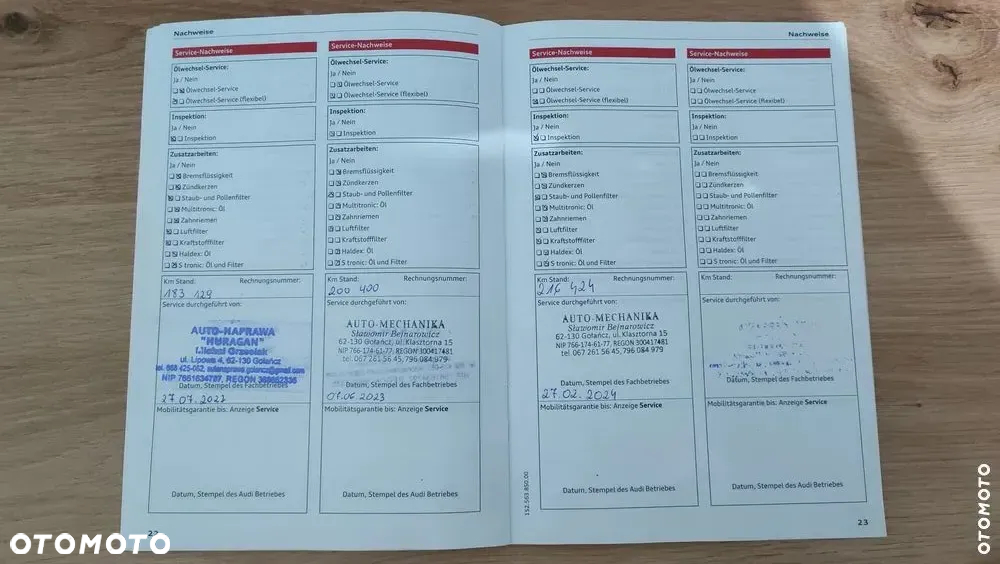 Nachweise
Service-Nachweise
Ölwechsel-Service:
Ja / Nein
Ölwechsel-Service
Ölwechsel-Service (flexibel)
Inspektion:
Ja / Nein
Inspektion
Zusatzarbeiten:
Ja / Nein
Bremsflüssigkeit
Zündkerzen
Staub- und Pollenfilter
Multitronic: Öl
Zahnriemen
Luftfilter
Kraftstofffilter
Haldex: Öl
S tronic: Öl und Filter
Km Stand: Rechnungsnummer:
183 129
Service durchgeführt von:
AUTO-NAPRAWA
"HURAGAN"
ul. Lipowa 4, 62-130 Gołańcz
Datum, Stempel des Fachbetriebes
Mobilitätsgarantie bis: Anzeige Service
Datum, Stempel des Audi Betriebes
22
Service-Nachweise
Ölwechsel-Service:
Ja / Nein
Ölwechsel-Service
Ölwechsel-Service (flexibel)
Inspektion:
Ja / Nein
Inspektion
Zusatzarbeiten:
Ja / Nein
Bremsflüssigkeit
Zündkerzen
Staub- und Pollenfilter
Multitronic: Öl
Zahnriemen
Luftfilter
Kraftstofffilter
Haldex: Öl
S tronic: Öl und Filter
Km Stand: Rechnungsnummer:
200 400
Service durchgeführt von:
AUTO-MECHANIKA
Sławomir Bejnarowicz
62-130 Gołańcz, ul. Klasztorna 15
NIP 766-174-61-77, REGON 300417481
tel. 067 261 56 45, 796 084 979
Datum, Stempel des Fachbetriebes
07.06 2023
Mobilitätsgarantie bis: Anzeige Service
Datum, Stempel des Audi Betriebes
Nachweise
Service-Nachweise
Ölwechsel-Service:
Ja / Nein
Ölwechsel-Service
Ölwechsel-Service (flexibel)
Inspektion:
Ja / Nein
Inspektion
Zusatzarbeiten:
Ja / Nein
Bremsflüssigkeit
Zündkerzen
Staub- und Pollenfilter
Multitronic: Öl
Zahnriemen
Luftfilter
Kraftstofffilter
Haldex: Öl
S tronic: Öl und Filter
Km Stand: Rechnungsnummer:
216 424
Service durchgeführt von:
AUTO-MECHANIKA
Sławomir Bejnarowicz
62-130 Gołańcz, ul. Klasztorna 15
NIP 766-174-61-77, REGON 300417481
tel. 067 261 56 45, 796 084 979
Datum, Stempel des Fachbetriebes
27.02.2024
Mobilitätsgarantie bis: Anzeige Service
Datum, Stempel des Audi Betriebes
152.563.850.00
Service-Nachweise
Ölwechsel-Service:
Ja / Nein
Ölwechsel-Service
Ölwechsel-Service (flexibel)
Inspektion:
Ja / Nein
Inspektion
Zusatzarbeiten:
Ja / Nein
Bremsflüssigkeit
Zündkerzen
Staub- und Pollenfilter
Multitronic: Öl
Zahnriemen
Luftfilter
Kraftstofffilter
Haldex: Öl
S tronic: Öl und Filter
Km Stand: Rechnungsnummer:
Service durchgeführt von:
Datum, Stempel des Fachbetriebes
Mobilitätsgarantie bis: Anzeige Service
Datum, Stempel des Audi Betriebes
23
OTOMOTO
OTOMOTO